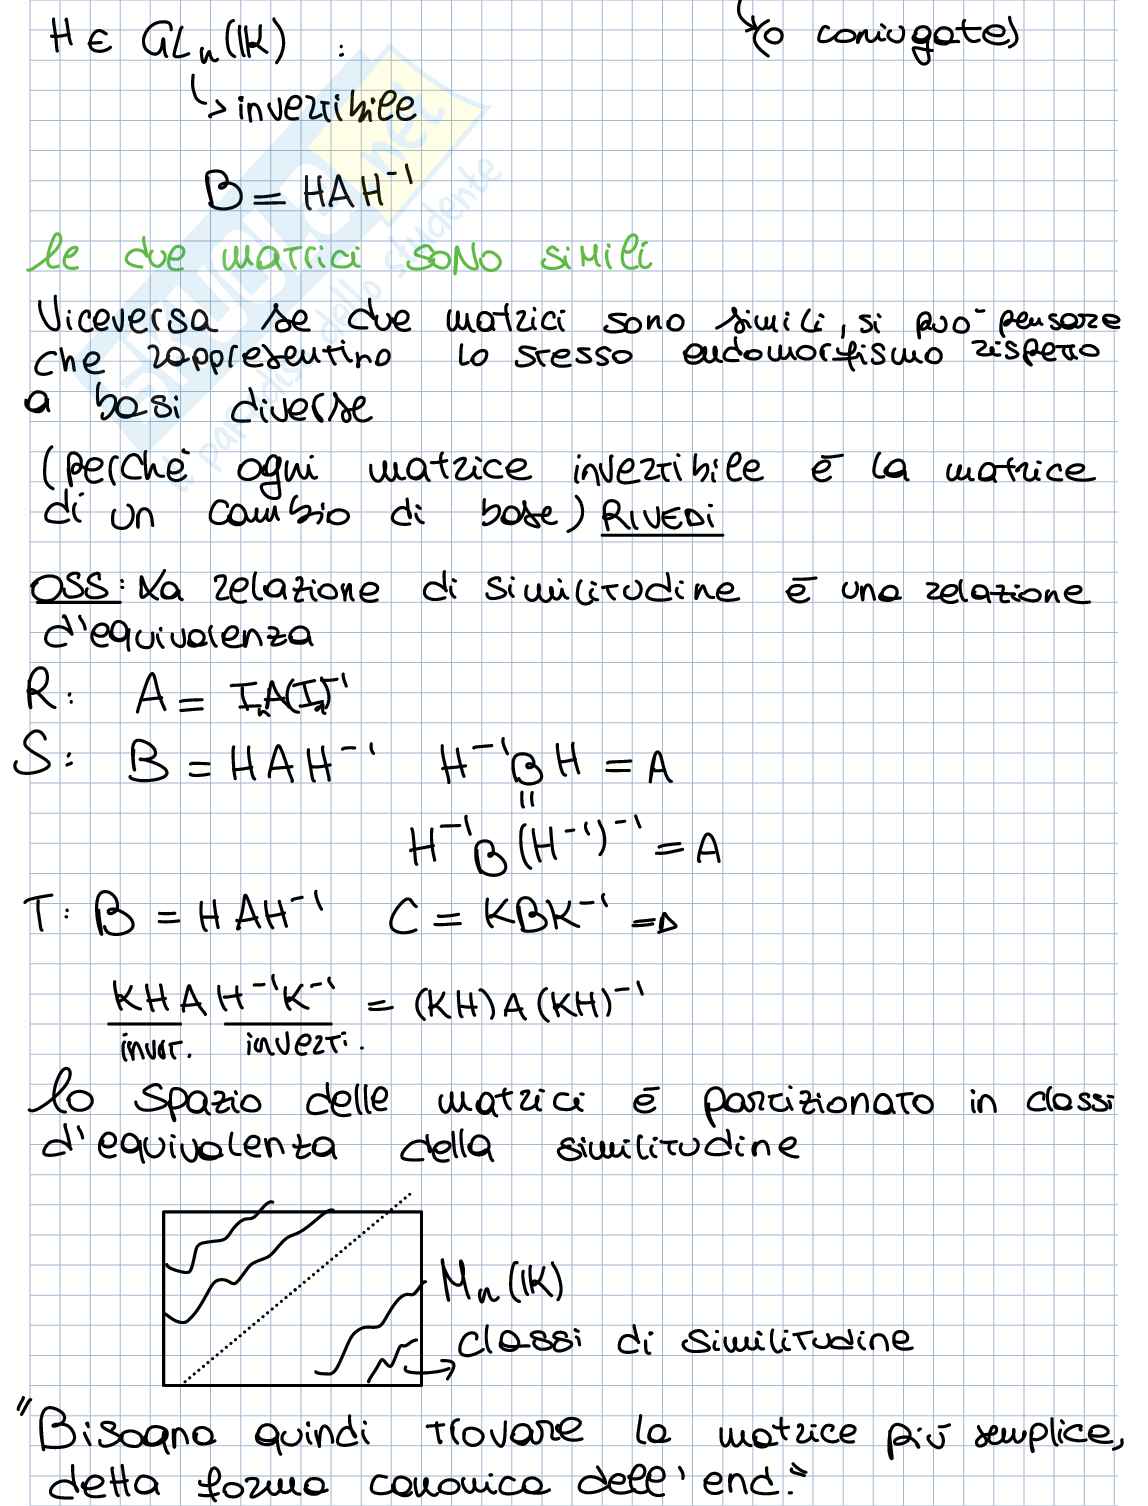 H ∈ GLₙ(𝕂) :
(o coniugate)
↳ invertibile
B = HAH⁻¹
le due matrici sono simili
Viceversa se due matrici sono simili, si può pensare
che rappresentino lo stesso endomorfismo rispetto
a basi diverse
(perchè ogni matrice invertibile è la matrice
di un cambio di base) RIVEDI
OSS: La relazione di similitudine è una relazione
d'equivalenza
R: A = IₙA(Iₙ)⁻¹
S: B = HAH⁻¹ H⁻¹BH = A
=
H⁻¹B(H⁻¹)⁻¹ = A
T: B = HAH⁻¹ C = KBK⁻¹ =>
KHAH⁻¹K⁻¹ = (KH)A(KH)⁻¹
invert. inverti.
lo spazio delle matrici è partizionato in classi
d'equivalenza della similitudine
Mₙ(𝕂)
classi di similitudine
"Bisogna quindi trovare la matrice più semplice,
detta forma canonica dell'end."